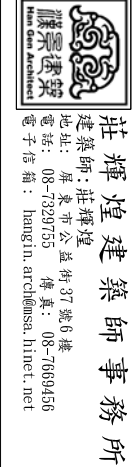 漢景建築
Han Gen Architect
莊輝煌建築師事務所
建築師:莊輝煌
地址: 屏東市公益街37號6樓
電話: 08-7329755 傳真: 08-7669456
電子信箱: hangin.arch@msa.hinet.net